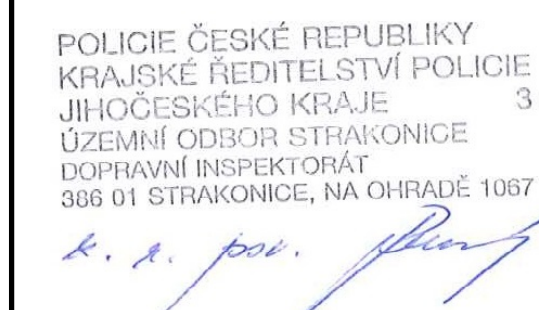 POLICIE ČESKÉ REPUBLIKY
KRAJSKÉ ŘEDITELSTVÍ POLICIE
JIHOČESKÉHO KRAJE 3
ÚZEMNÍ ODBOR STRAKONICE
DOPRAVNÍ INSPEKTORÁT
386 01 STRAKONICE, NA OHRADĚ 1067